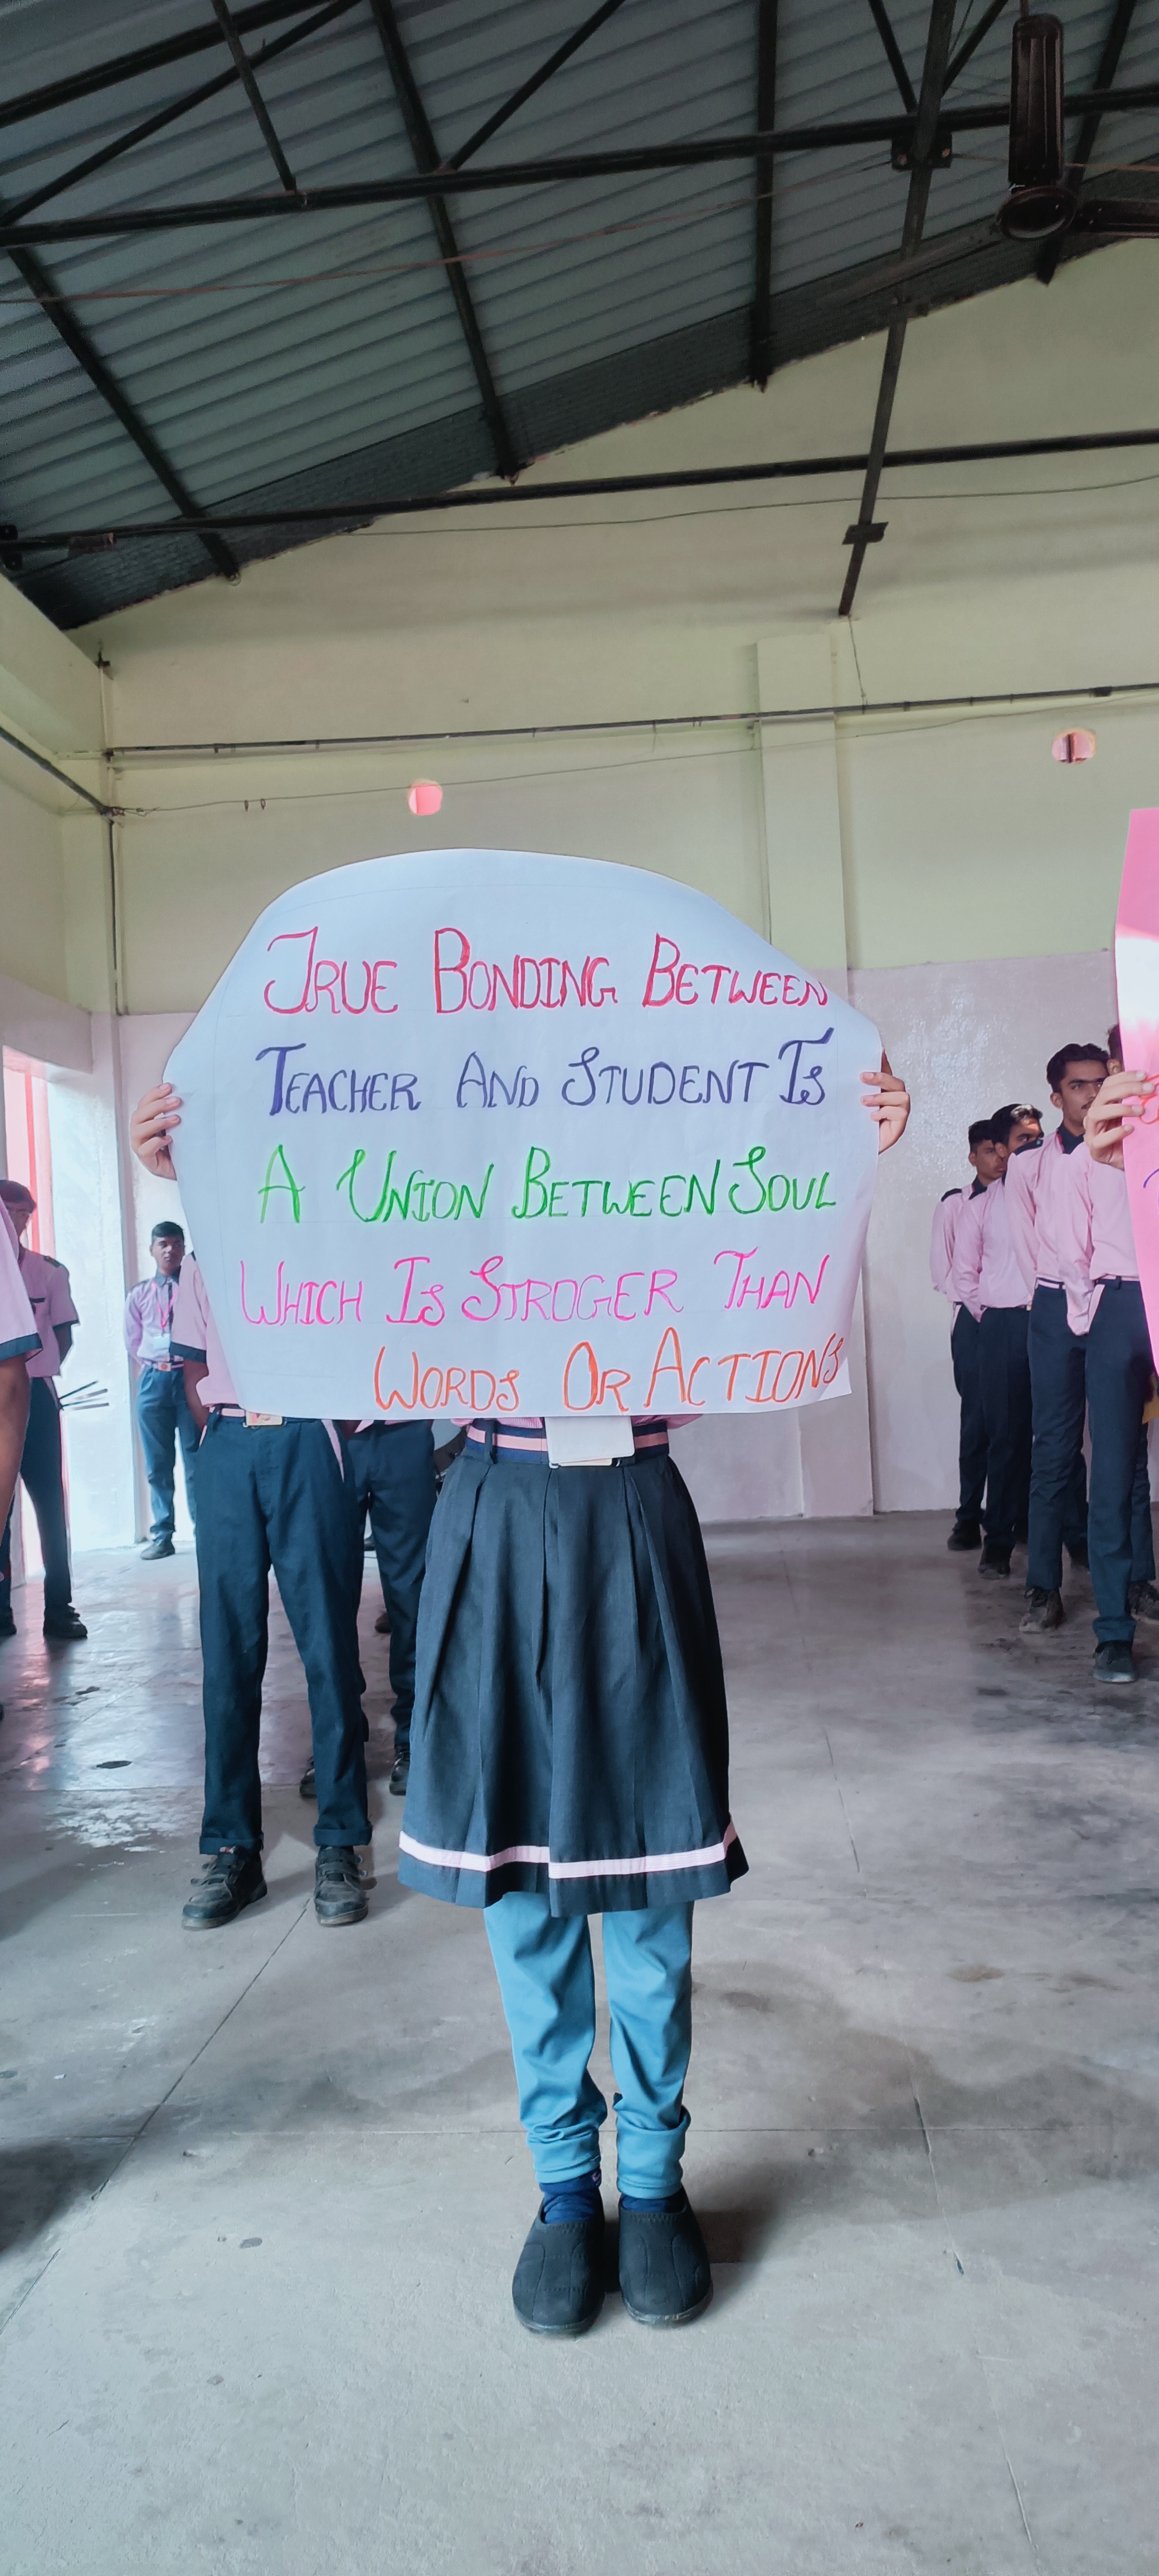 TRUE BONDING BETWEEN
TEACHER AND STUDENT IS
A UNION BETWEEN SOUL
WHICH IS STROGER THAN
WORDS OR ACTIONS